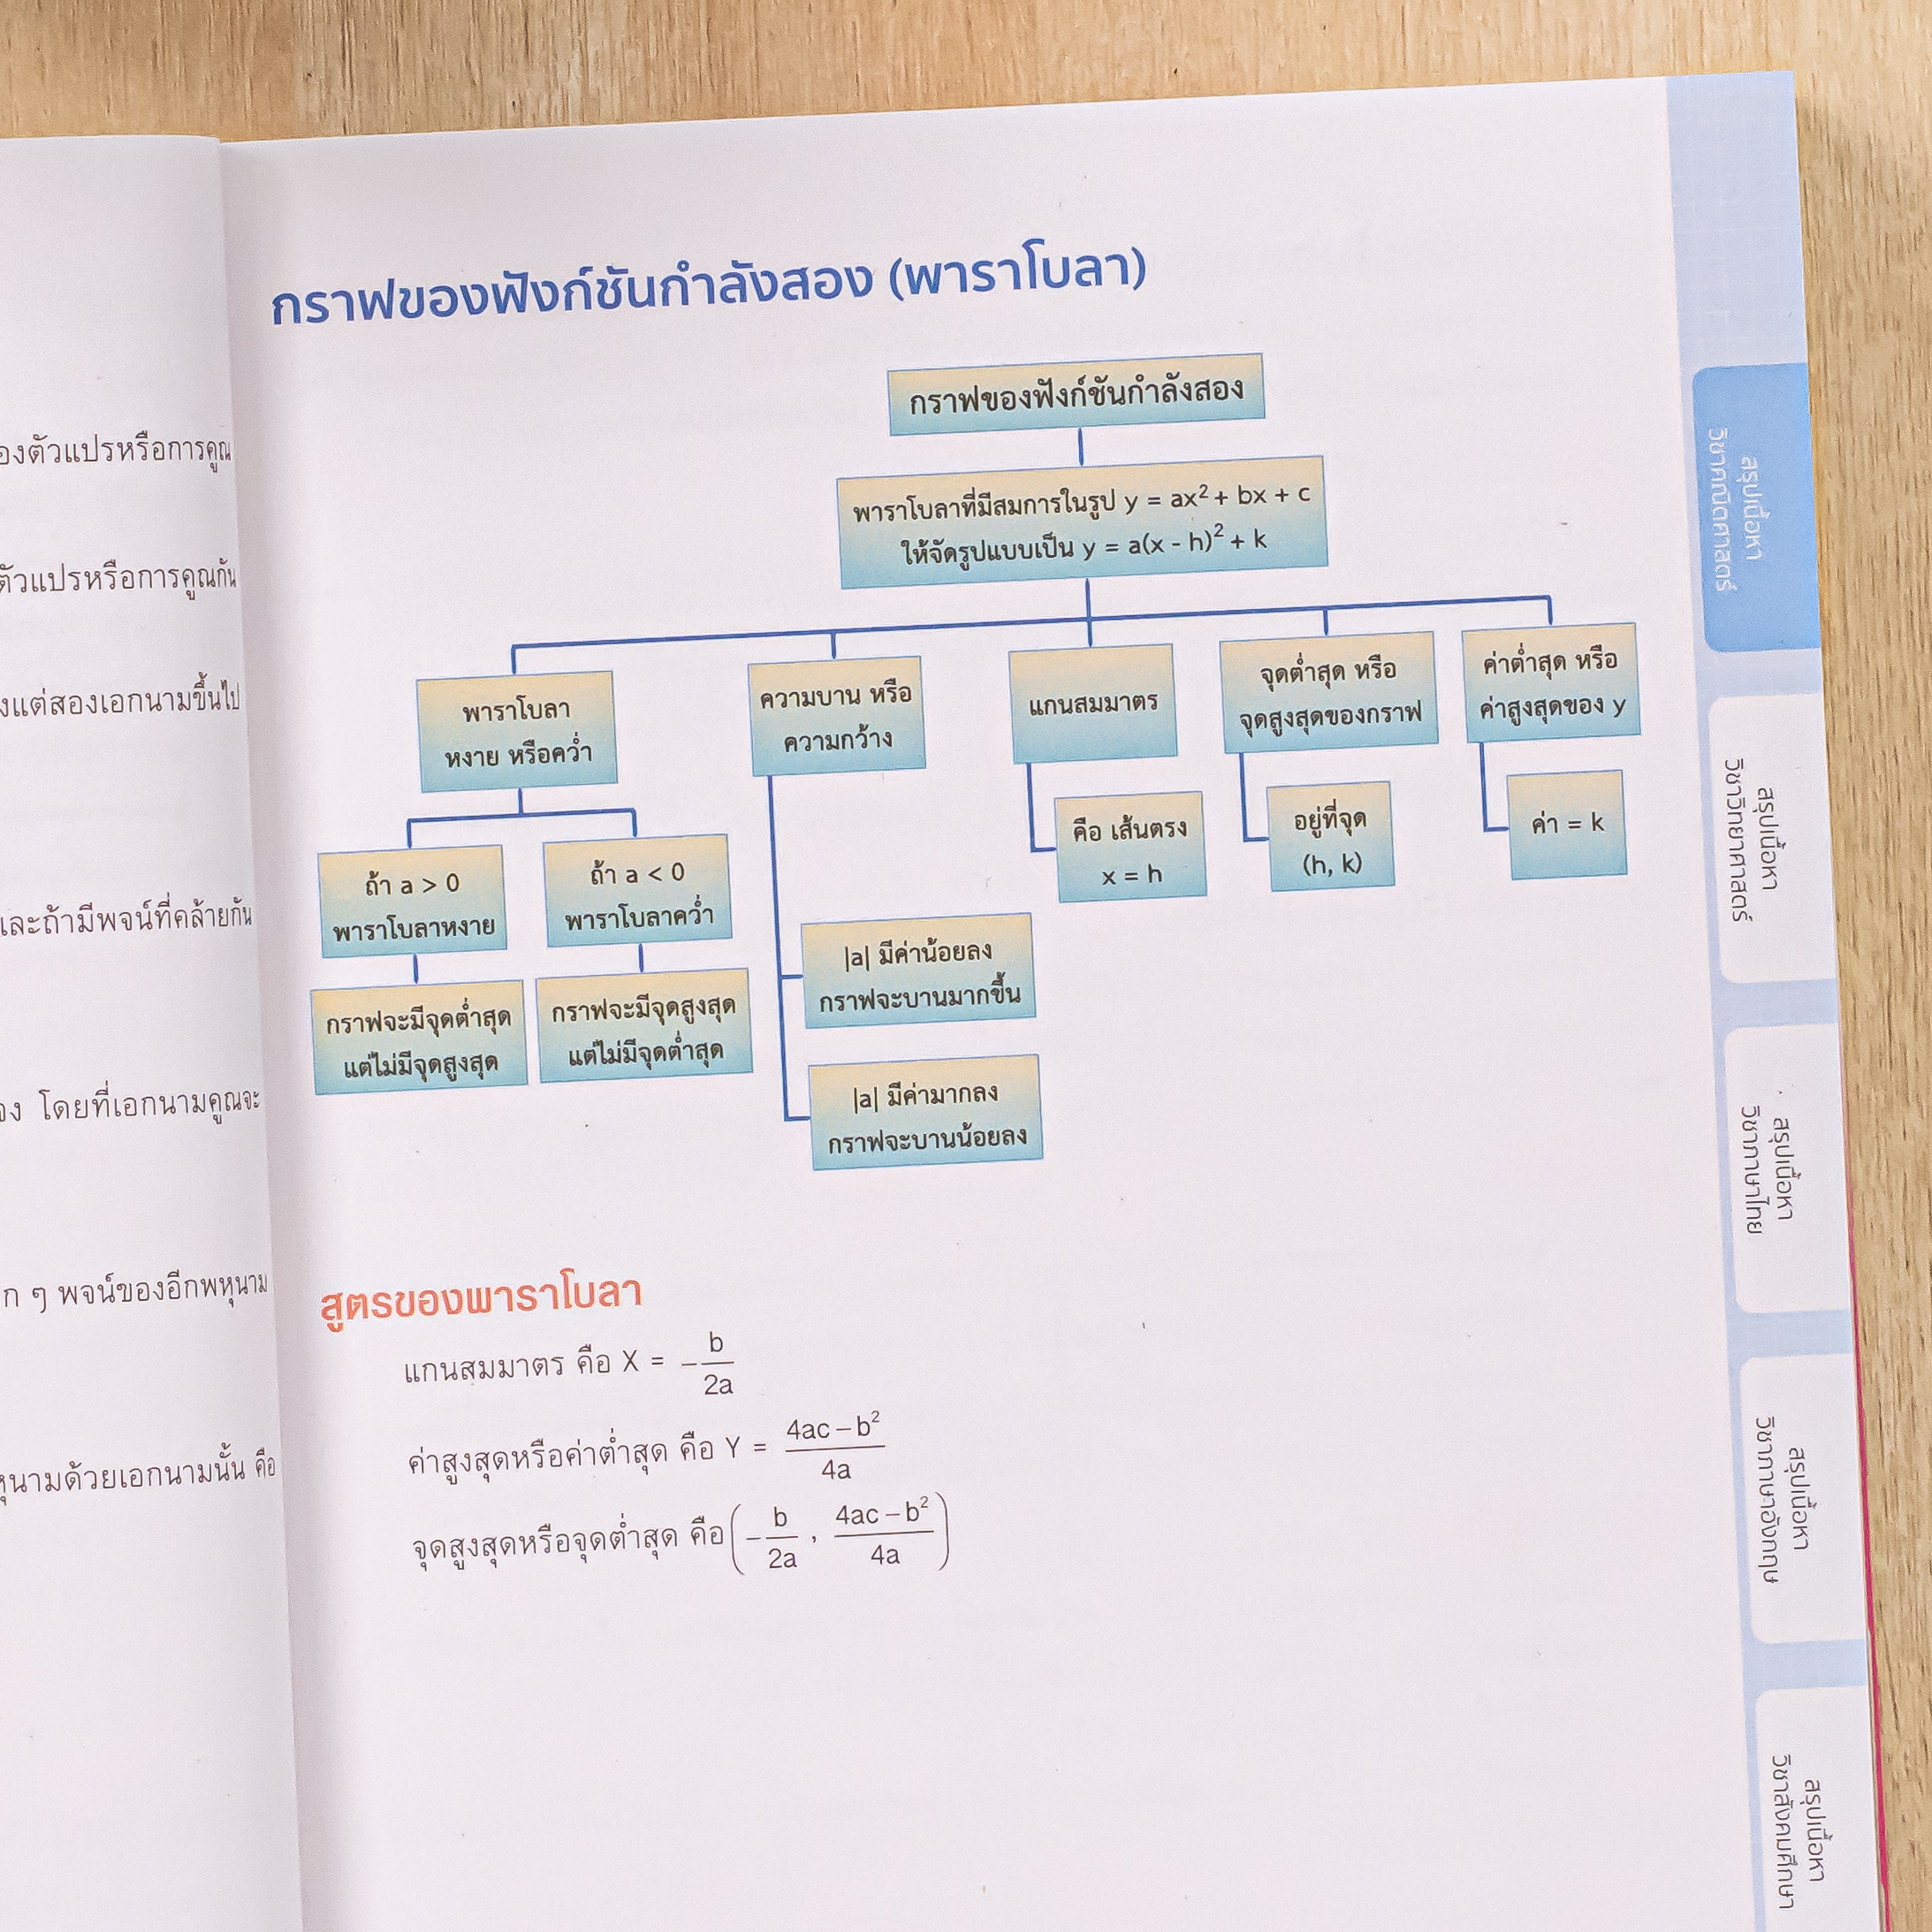 องตัวแปรหรือการคูณ
ตัวแปรหรือการคูณกัน
งแต่สองเอกนามขึ้นไป
และถ้ามีพจน์ที่คล้ายกัน
โดยที่เอกนามคูณจะ
ก ๆ พจน์ของอีกพหุนาม
หุนามด้วยเอกนามนั้น คือ
กราฟของฟังก์ชันกำลังสอง (พาราโบลา)
กราฟของฟังก์ชันกำลังสอง
พาราโบลาที่มีสมการในรูป y = ax² + bx + c
ให้จัดรูปแบบเป็น y = a(x - h)² + k
พาราโบลา
หงาย หรือคว่ำ
ถ้า a > 0
พาราโบลาหงาย
กราฟจะมีจุดต่ำสุด
แต่ไม่มีจุดสูงสุด
ถ้า a < 0
พาราโบลาคว่ำ
กราฟจะมีจุดสูงสุด
แต่ไม่มีจุดต่ำสุด
ความบาน หรือ
ความกว้าง
|a| มีค่าน้อยลง
กราฟจะบานมากขึ้น
|a| มีค่ามากลง
กราฟจะบานน้อยลง
แกนสมมาตร
คือ เส้นตรง
x = h
จุดต่ำสุด หรือ
จุดสูงสุดของกราฟ
อยู่ที่จุด
(h, k)
ค่าต่ำสุด หรือ
ค่าสูงสุดของ y
ค่า = k
สูตรของพาราโบลา
แกนสมมาตร คือ X = -b/2a
ค่าสูงสุดหรือค่าต่ำสุด คือ Y = (4ac – b²)/4a
จุดสูงสุดหรือจุดต่ำสุด คือ (-b/2a , (4ac – b²)/4a)
สรุปเนื้อหา
วิชาคณิตศาสตร์
สรุปเนื้อหา
วิชาวิทยาศาสตร์
สรุปเนื้อหา
วิชาภาษาไทย
สรุปเนื้อหา
วิชาภาษาอังกฤษ
สรุปเนื้อหา
วิชาสังคมศึกษา